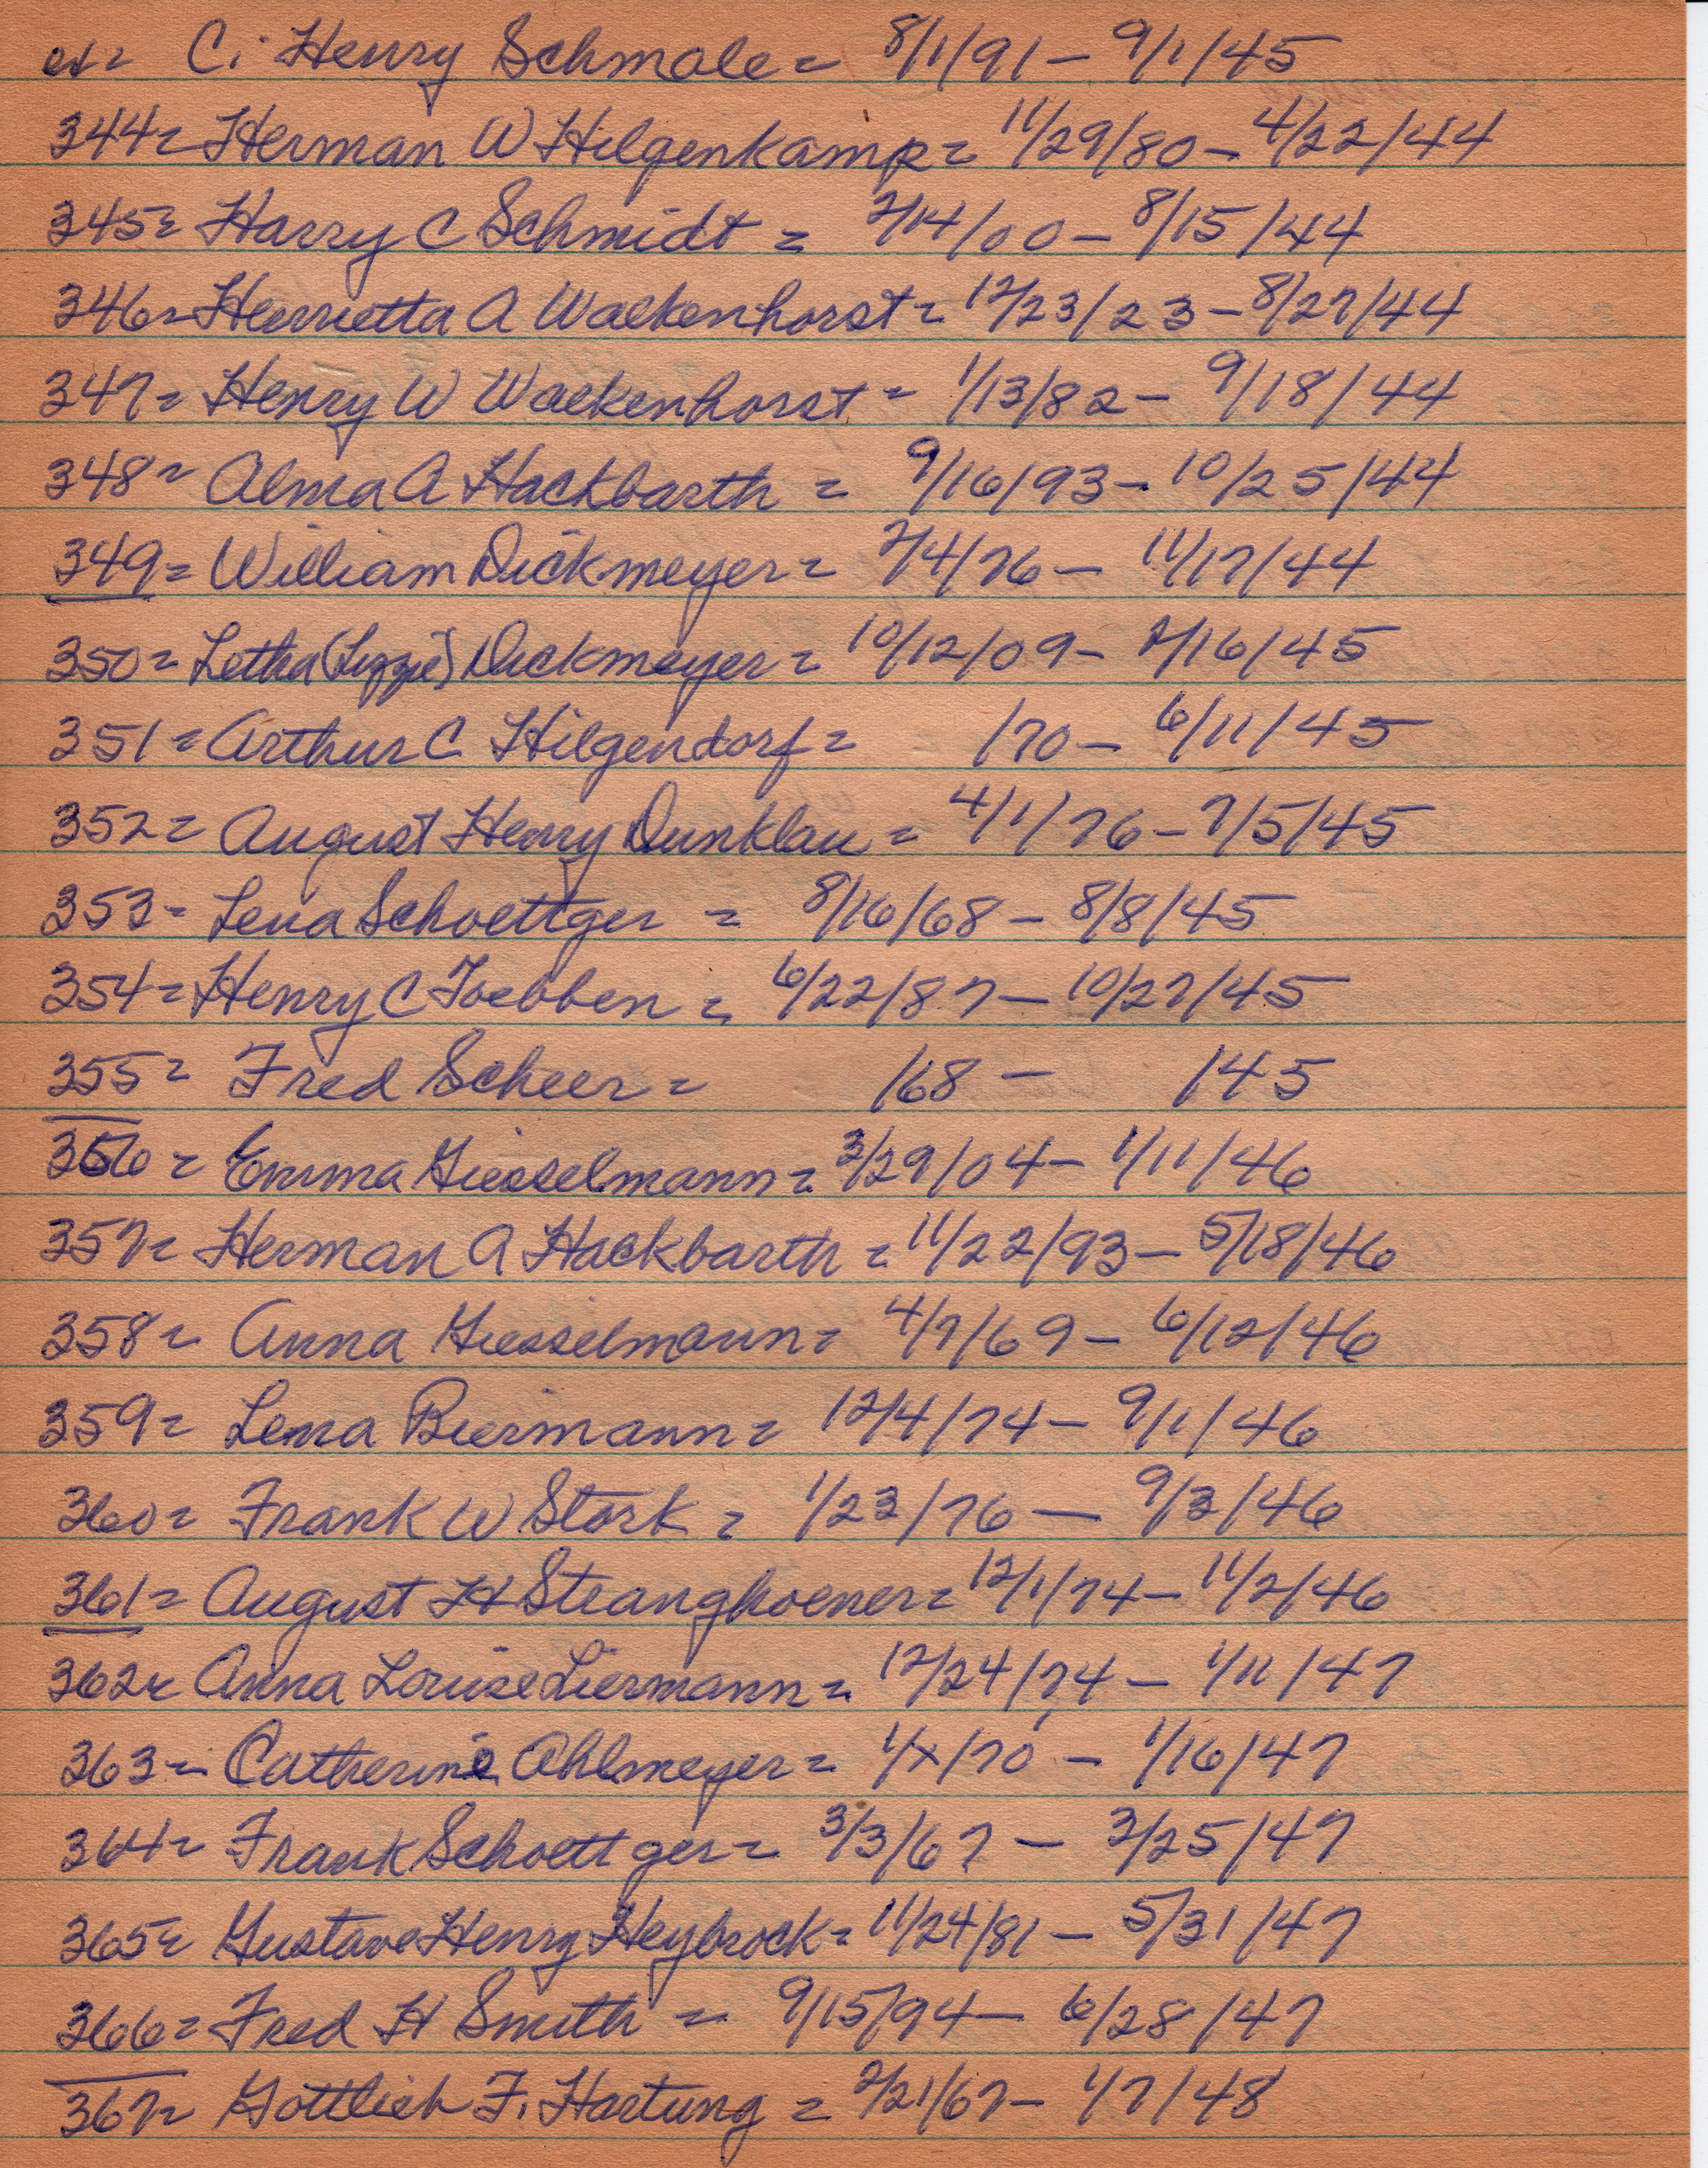 ex= C. Henry Schmale = 8/1/91 - 9/1/45
344 = Herman W Hilgenkamp = 11/29/80 - 4/22/44
345 = Harry C Schmidt = 2/14/00 - 8/15/44
346 = Henrietta A Wackenhorst = 12/23/23 - 8/27/44
347 = Henry W Wackenhorst = 1/13/82 - 9/18/44
348 = Alma A Hackbarth = 9/16/93 - 10/25/44
349 = William Dickmeyer = 2/4/76 - 11/17/44
350 = Letha (Lizzie) Dickmeyer = 10/12/09 - 2/16/45
351 = Arthur C Hilgendorf = /70 - 6/11/45
352 = August Henry Dunklau = 4/1/76 - 7/5/45
353 - Lena Schoettger = 8/16/68 - 8/8/45
354 = Henry C Toebben = 6/22/87 - 10/27/45
355 = Fred Scheer = /68 - /45
356 = Emma Giesselmann = 3/29/04 - 1/11/46
357 = Herman A Hackbarth = 11/22/93 - 5/18/46
358 = Anna Giesselmann = 4/7/69 - 6/12/46
359 = Lena Biermann = 12/4/74 - 9/1/46
360 = Frank W Stork = 1/23/76 - 9/3/46
361 = August H Stranghoener = 12/1/74 - 11/2/46
362 = Anna Louise Liermann = 12/24/74 - 1/11/47
363 = Catherine Ahlmeyer = 1/x/70 - 1/16/47
364 = Frank Schoettger = 3/3/67 - 3/25/47
365 = Gustave Henry Heybrock = 11/24/81 - 5/31/47
366 = Fred H Smith = 9/15/94 - 6/28/47
367 = Gottlieb F. Hartung = 2/21/67 - 1/7/48